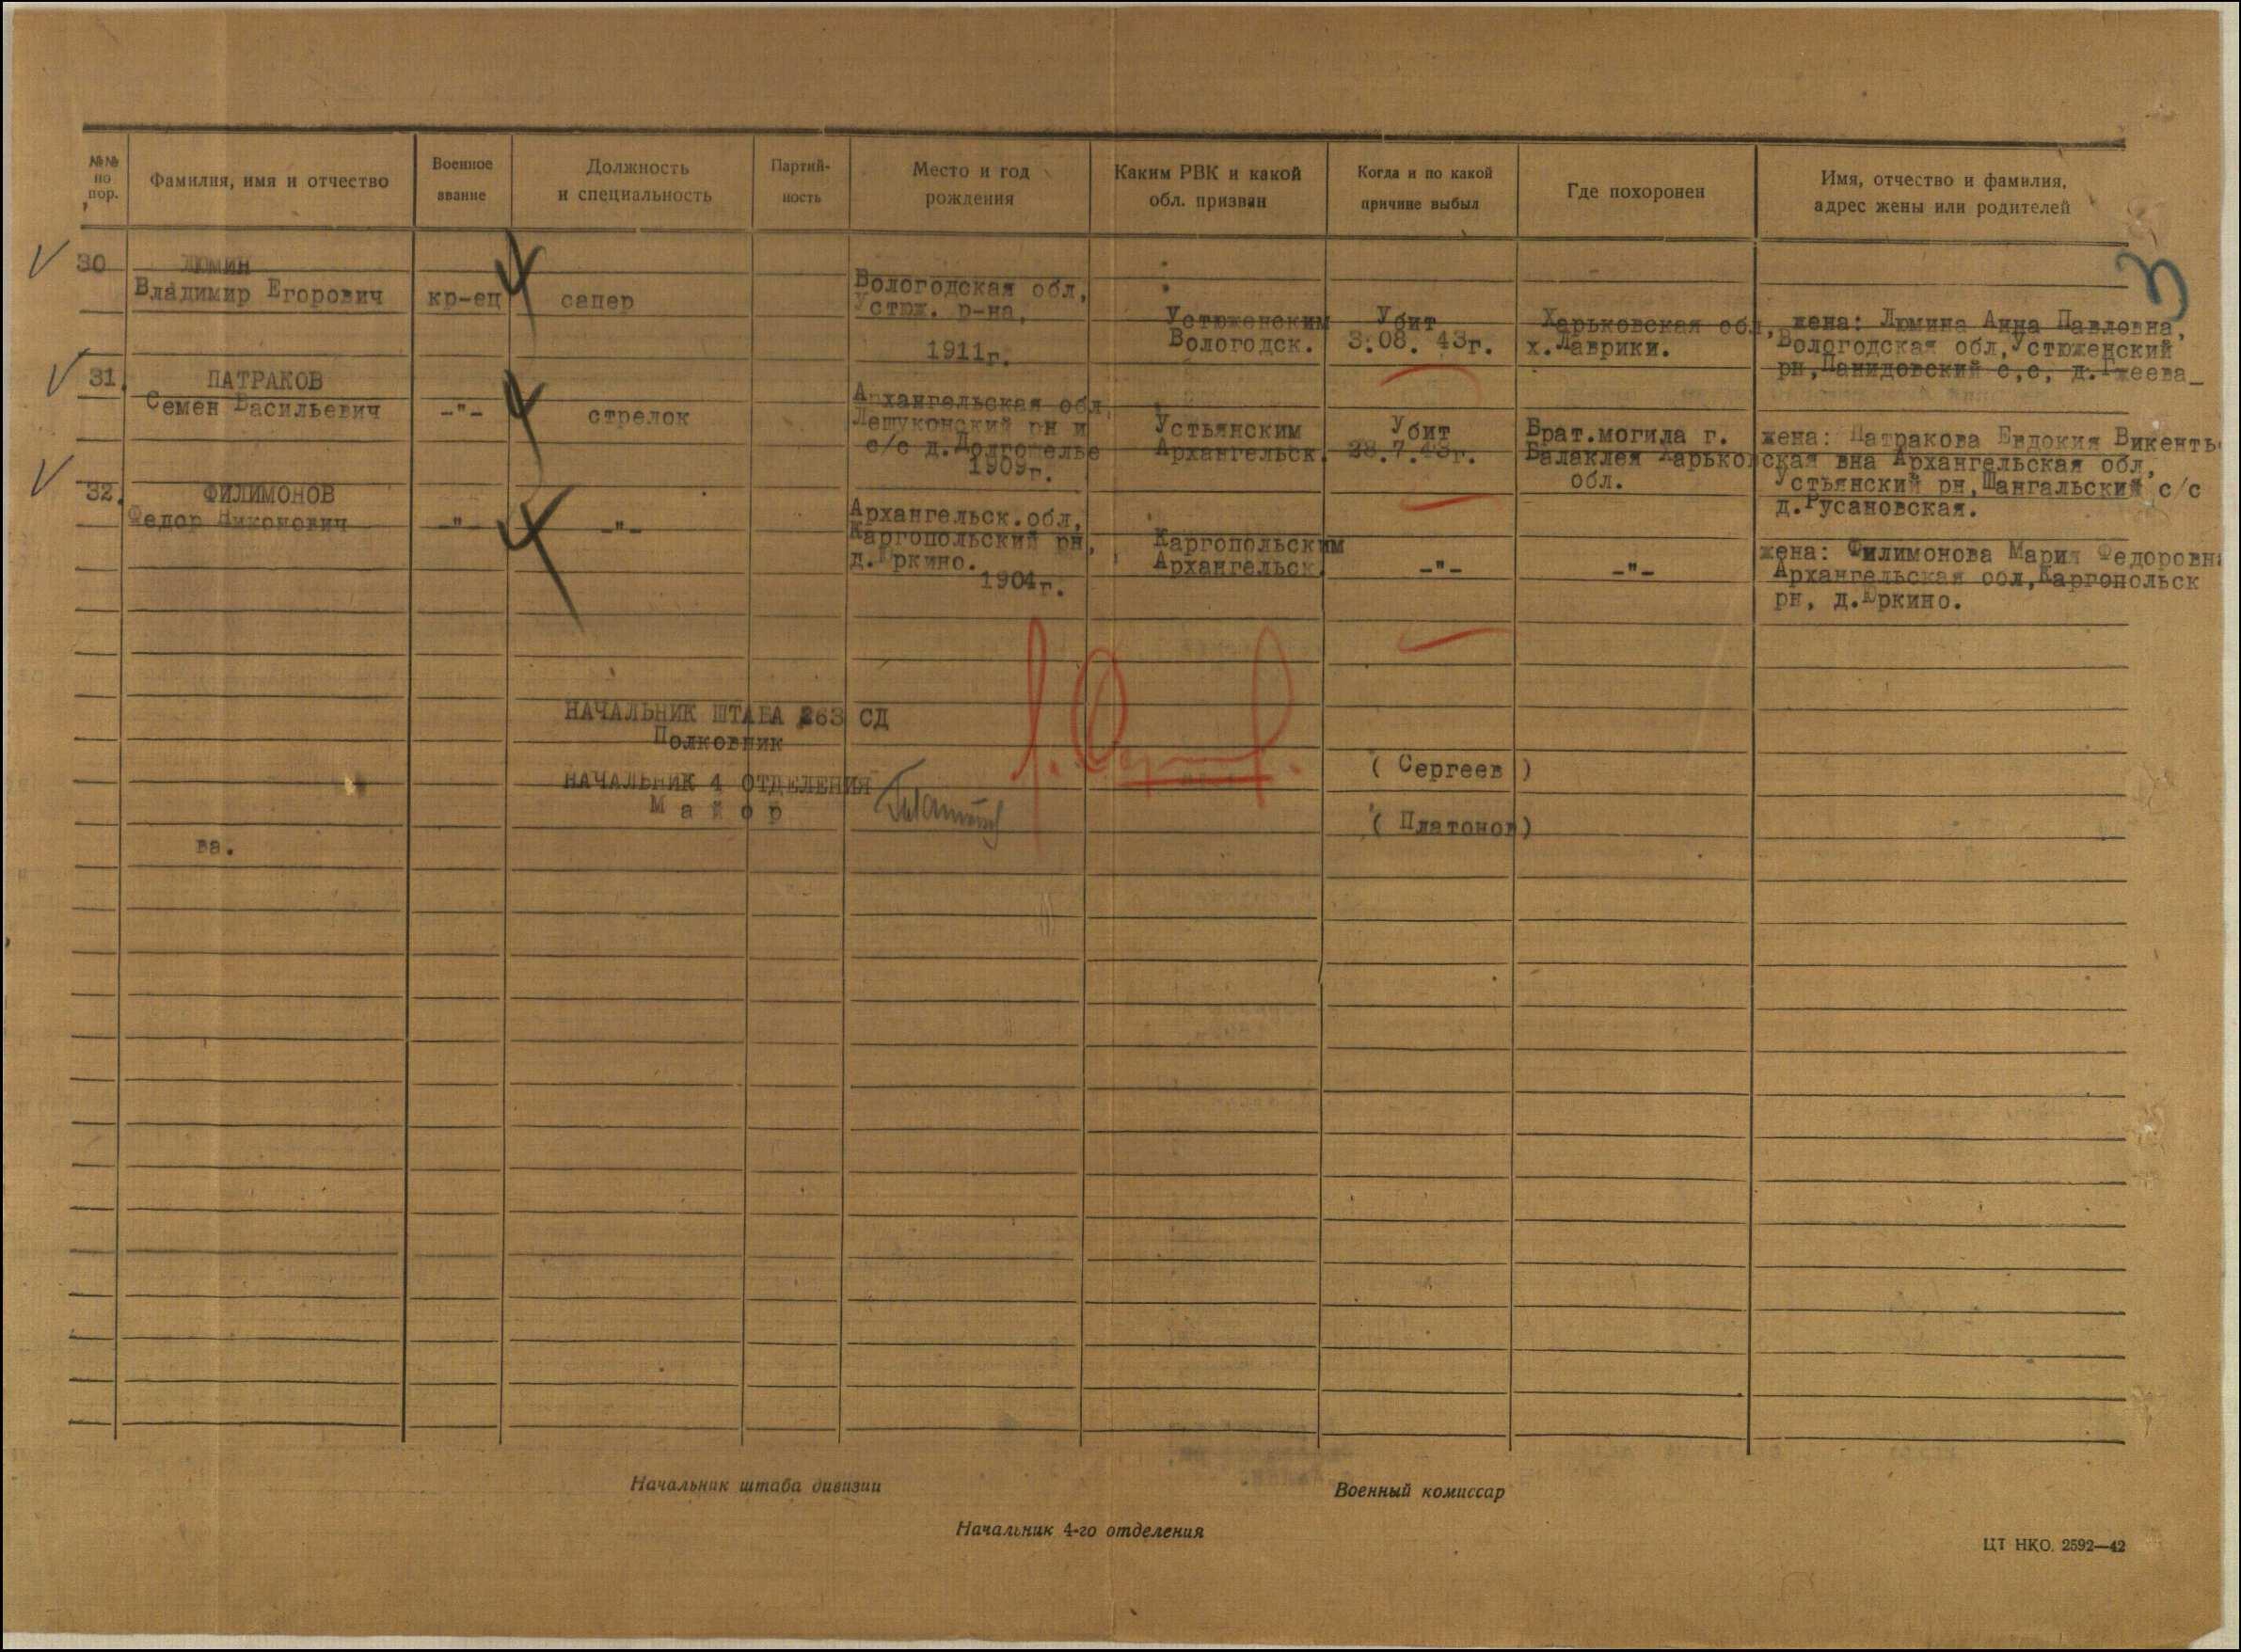 №№ по пор.
Фамилия, имя и отчество
Военное звание
Должность и специальность
Партий-ность
Место и год рождения
Каким РВК и какой обл. призван
Когда и по какой причине выбыл
Где похоронен
Имя, отчество и фамилия, адрес жены или родителей
30
ЛЮМИН
Владимир Егорович
кр-ец
сапер
Вологодская обл,
Устюж. р-на,
1911г.
Устюженским
Вологодск.
Убит
3.08. 43г.
Харьковская обл,
х.Лаврики.
жена: Люмина Анна Павловна,
Вологодская обл,Устюженский
рн, с,с, д.
31,
ПАТРАКОВ
Семен Васильевич
-"-
стрелок
Архангельская обл,
Лешуконский рн и
с/с д.Долгощелье
1909г.
Устьянским
Архангельск.
Убит
28.7.43г.
Брат.могила г.
Балаклея Харьковская
обл.
жена: Патракова Евдокия Викенть
вна Архангельская обл,
Устьянский рн,Шангальский с/с
д.Русановская.
32,
ФИЛИМОНОВ
Федор Никонович
-"-
-"-
Архангельск.обл,
Каргопольский рн,
д.Юркино.
1904г.
Каргопольским
Архангельск.
-"-
-"-
жена: Филимонова Мария Федоровна
Архангельская обл,Каргопольск
рн, д.Юркино.
3
НАЧАЛЬНИК ШТАБА 263 СД
Полковник
( Сергеев )
НАЧАЛЬНИК 4 ОТДЕЛЕНИЯ
М а й о р
( Платонов)
ва.
Начальник штаба дивизии
Военный комиссар
Начальник 4-го отделения
ЦТ НКО. 2592—42